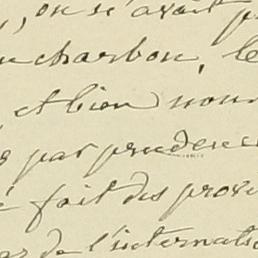 , on n'avait p
charbon, le
et bien nour
par prudence
fait des prov
de l'internat